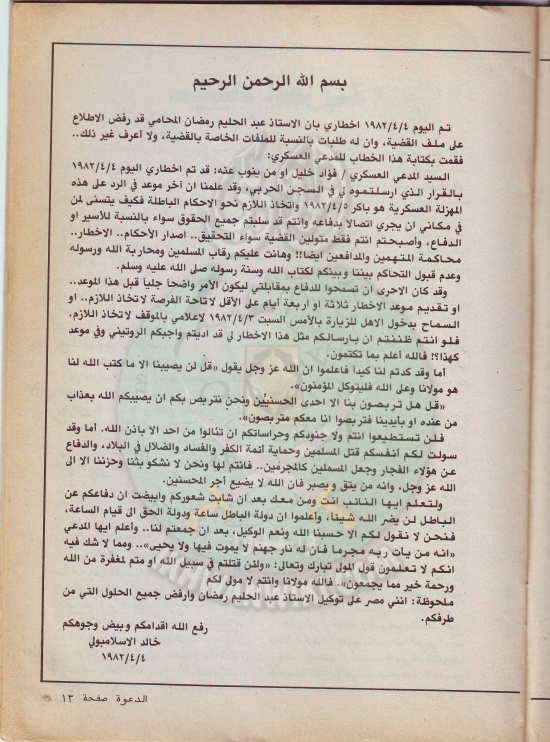 بسم الله الرحمن الرحيم
تم اليوم ١٩٨٢/٤/٤ اخطاري بان الاستاذ عبد الحليم رمضان المحامي قد رفض الاطلاع
على ملف القضية، وان له طلبات بالنسبة للملفات الخاصة بالقضية، ولا أعرف غير ذلك..
فقمت بكتابة هذا الخطاب للمدعي العسكري:
السيد المدعي العسكري / فؤاد خليل او من ينوب عنه: قد تم اخطاري اليوم ١٩٨٢/٤/٤
بالقرار الذي ارسلتموه لي في السجن الحربي، وقد علمنا ان آخر موعد في الرد على هذه
المهزلة العسكرية هو باكر ١٩٨٢/٤/٥ واتخاذ اللازم نحو الاحكام الباطلة فكيف يتسنى لمن
في مكاني ان يجري اتصالا بدفاعه وانتم قد سلبتم جميع الحقوق سواء بالنسبة للأسير او
الدفاع، وأصبحتم انتم فقط متولين القضية سواء التحقيق.. اصدار الأحكام.. الاخطار..
محاكمة المتهمين والمدافعين ايضا!! وهانت عليكم رقاب المسلمين ومحاربة الله ورسوله
وعدم قبول التحاكم بيننا وبينكم لكتاب الله وسنة رسوله صلى الله عليه وسلم.
وقد كان الاحرى ان تسمحوا للدفاع بمقابلتي ليكون الأمر واضحا جليا قبل هذا الموعد..
او تقديم موعد الاخطار ثلاثة او اربعة أيام على الأقل لاتاحة الفرصة لاتخاذ اللازم.. او
السماح بدخول الاهل للزيارة بالأمس السبت ١٩٨٢/٤/٣ لاعلامي بالموقف لاتخاذ اللازم.
فلو انتم ظننتم ان بارسالكم مثل هذا الاخطار لي قد اديتم واجبكم الروتيني وفي موعد
كهذا؟! فالله أعلم بما تكتمون.
أما وقد كدتم لنا كيدا فاعلموا ان الله عز وجل يقول «قل لن يصيبنا الا ما كتب الله لنا
هو مولانا وعلى الله فليتوكل المؤمنون».
«قل هل تربصون بنا الا احدى الحسنيين ونحن نتربص بكم ان يصيبكم الله بعذاب
من عنده او بأيدينا فتربصوا انا معكم متربصون».
فلن تستطيعوا انتم ولا جنودكم وحراساتكم ان تنالوا من احد الا باذن الله. أما وقد
سولت لكم انفسكم قتل المسلمين وحماية أئمة الكفر والفساد والضلال في البلاد، والدفاع
عن هؤلاء الفجار وجعل المسلمين كالمجرمين.. فانتم لها ونحن لا نشكو بثنا وحزننا الا الى
الله عز وجل، وانه من يتق ويصبر فان الله لا يضيع أجر المحسنين.
ولتعلم ايها النائب انت ومن معك بعد ان شابت شعوركم وابيضت ان دفاعكم عن
الباطل لن يضر الله شيئا، وأعلموا ان دولة الباطل ساعة ودولة الحق الى قيام الساعة،
فنحن لا نقول لكم الا حسبنا الله ونعم الوكيل، بعد ان جمعتم لنا.. وأعلم ايها المدعي
«انه من يأت ربه مجرما فان له نار جهنم لا يموت فيها ولا يحيى».. ومما لا شك فيه
انكم لا تعلمون قول المولى تبارك وتعالى: «ولئن قتلتم في سبيل الله او متم لمغفرة من الله
ورحمة خير مما يجمعون». فالله مولانا وانتم لا مولى لكم
ملحوظة: انني مصر على توكيل الاستاذ عبد الحليم رمضان وارفض جميع الحلول التي من
طرفكم.
رفع الله اقدامكم وبيض وجوهكم
خالد الاسلامبولي
١٩٨٢/٤/٤
الدعوة صفحة ١٣